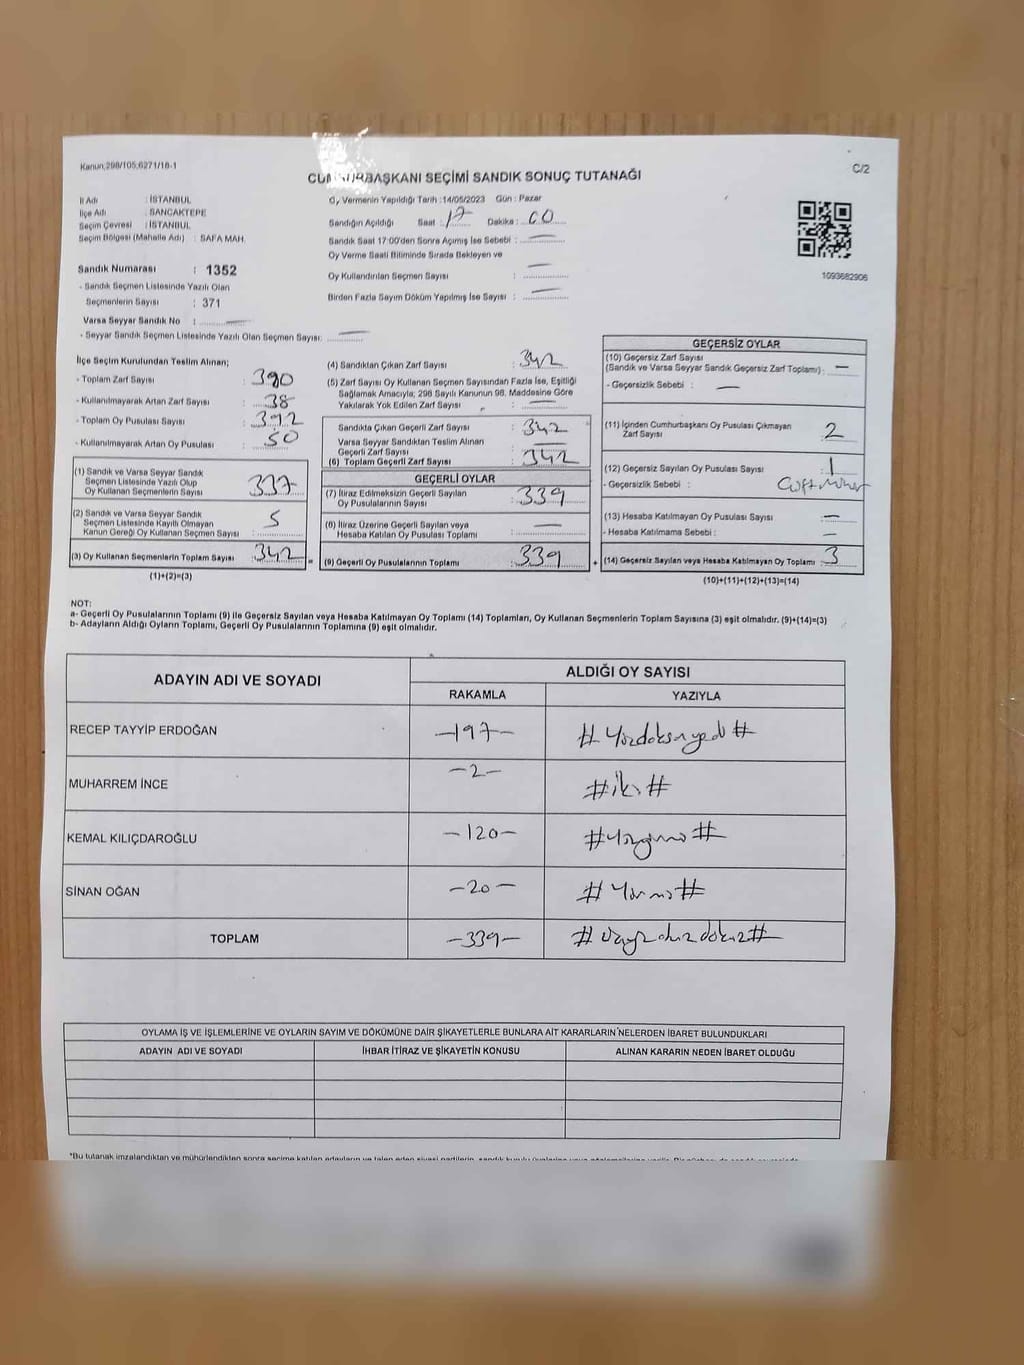 Kanun:298/105,6271/18-1
C/2
CUMHURBAŞKANI SEÇİMİ SANDIK SONUÇ TUTANAĞI
İl Adı : İSTANBUL
İlçe Adı : SANCAKTEPE
Seçim Çevresi : İSTANBUL
Seçim Bölgesi (Mahalle Adı) : SAFA MAH.
Sandık Numarası : 1352
- Sandık Seçmen Listesinde Yazılı Olan
Seçmenlerin Sayısı : 371
Varsa Seyyar Sandık No :
- Seyyar Sandık Seçmen Listesinde Yazılı Olan Seçmen Sayısı:
Oy Vermenin Yapıldığı Tarih :14/05/2023 Gün : Pazar
Sandığın Açıldığı Saat : 17 Dakika : 00
Sandık Saat 17:00'den Sonra Açımış İse Sebebi :
Oy Verme Saati Bitiminde Sırada Bekleyen ve
Oy Kullandırılan Seçmen Sayısı :
Birden Fazla Sayım Döküm Yapılmış İse Sayısı :
1093682906
İlçe Seçim Kurulundan Teslim Alınan;
- Toplam Zarf Sayısı : 390
- Kullanılmayarak Artan Zarf Sayısı : 38
- Toplam Oy Pusulası Sayısı : 392
- Kullanılmayarak Artan Oy Pusulası : 50
(1) Sandık ve Varsa Seyyar Sandık
Seçmen Listesinde Yazılı Olup
Oy Kullanan Seçmenlerin Sayısı : 337
(2) Sandık ve Varsa Seyyar Sandık
Seçmen Listesinde Kayıtlı Olmayan
Kanun Gereği Oy Kullanan Seçmen Sayısı : 5
(3) Oy Kullanan Seçmenlerin Toplam Sayısı : 342
(1)+(2)=(3)
(4) Sandıktan Çıkan Zarf Sayısı : 342
(5) Zarf Sayısı Oy Kullanan Seçmen Sayısından Fazla İse, Eşitliği
Sağlamak Amacıyla; 298 Sayılı Kanunun 98. Maddesine Göre
Yakılarak Yok Edilen Zarf Sayısı :
Sandıkta Çıkan Geçerli Zarf Sayısı : 342
Varsa Seyyar Sandıktan Teslim Alınan
Geçerli Zarf Sayısı :
(6) Toplam Geçerli Zarf Sayısı : 342
GEÇERLİ OYLAR
(7) İtiraz Edilmeksizin Geçerli Sayılan
Oy Pusulalarının Sayısı : 339
(8) İtiraz Üzerine Geçerli Sayılan veya
Hesaba Katılan Oy Pusulası Toplamı :
(9) Geçerli Oy Pusulalarının Toplamı : 339
GEÇERSİZ OYLAR
(10) Geçersiz Zarf Sayısı
(Sandık ve Varsa Seyyar Sandık Geçersiz Zarf Toplamı) : —
- Geçersizlik Sebebi : —
(11) İçinden Cumhurbaşkanı Oy Pusulası Çıkmayan
Zarf Sayısı : 2
(12) Geçersiz Sayılan Oy Pusulası Sayısı : 1
- Geçersizlik Sebebi :
(13) Hesaba Katılmayan Oy Pusulası Sayısı : —
- Hesaba Katılmama Sebebi : —
(14) Geçersiz Sayılan veya Hesaba Katılmayan Oy Toplamı : 3
(10)+(11)+(12)+(13)=(14)
NOT:
a- Geçerli Oy Pusulalarının Toplamı (9) ile Geçersiz Sayılan veya Hesaba Katılmayan Oy Toplamı (14) Toplamları, Oy Kullanan Seçmenlerin Toplam Sayısına (3) eşit olmalıdır. (9)+(14)=(3)
b- Adayların Aldığı Oyların Toplamı, Geçerli Oy Pusulalarının Toplamına (9) eşit olmalıdır.
ADAYIN ADI VE SOYADI
ALDIĞI OY SAYISI
RAKAMLA YAZIYLA
RECEP TAYYİP ERDOĞAN -197- # Yüzdoksanyedi #
MUHARREM İNCE -2- # iki #
KEMAL KILIÇDAROĞLU -120- # Yüzyirmi #
SİNAN OĞAN -20- # Yirmi #
TOPLAM -339- # üçyüzotuzdokuz #
OYLAMA İŞ VE İŞLEMLERİNE VE OYLARIN SAYIM VE DÖKÜMÜNE DAİR ŞİKAYETLERLE BUNLARA AİT KARARLARIN NELERDEN İBARET BULUNDUKLARI
ADAYIN ADI VE SOYADI İHBAR İTİRAZ VE ŞİKAYETİN KONUSU ALINAN KARARIN NEDEN İBARET OLDUĞU